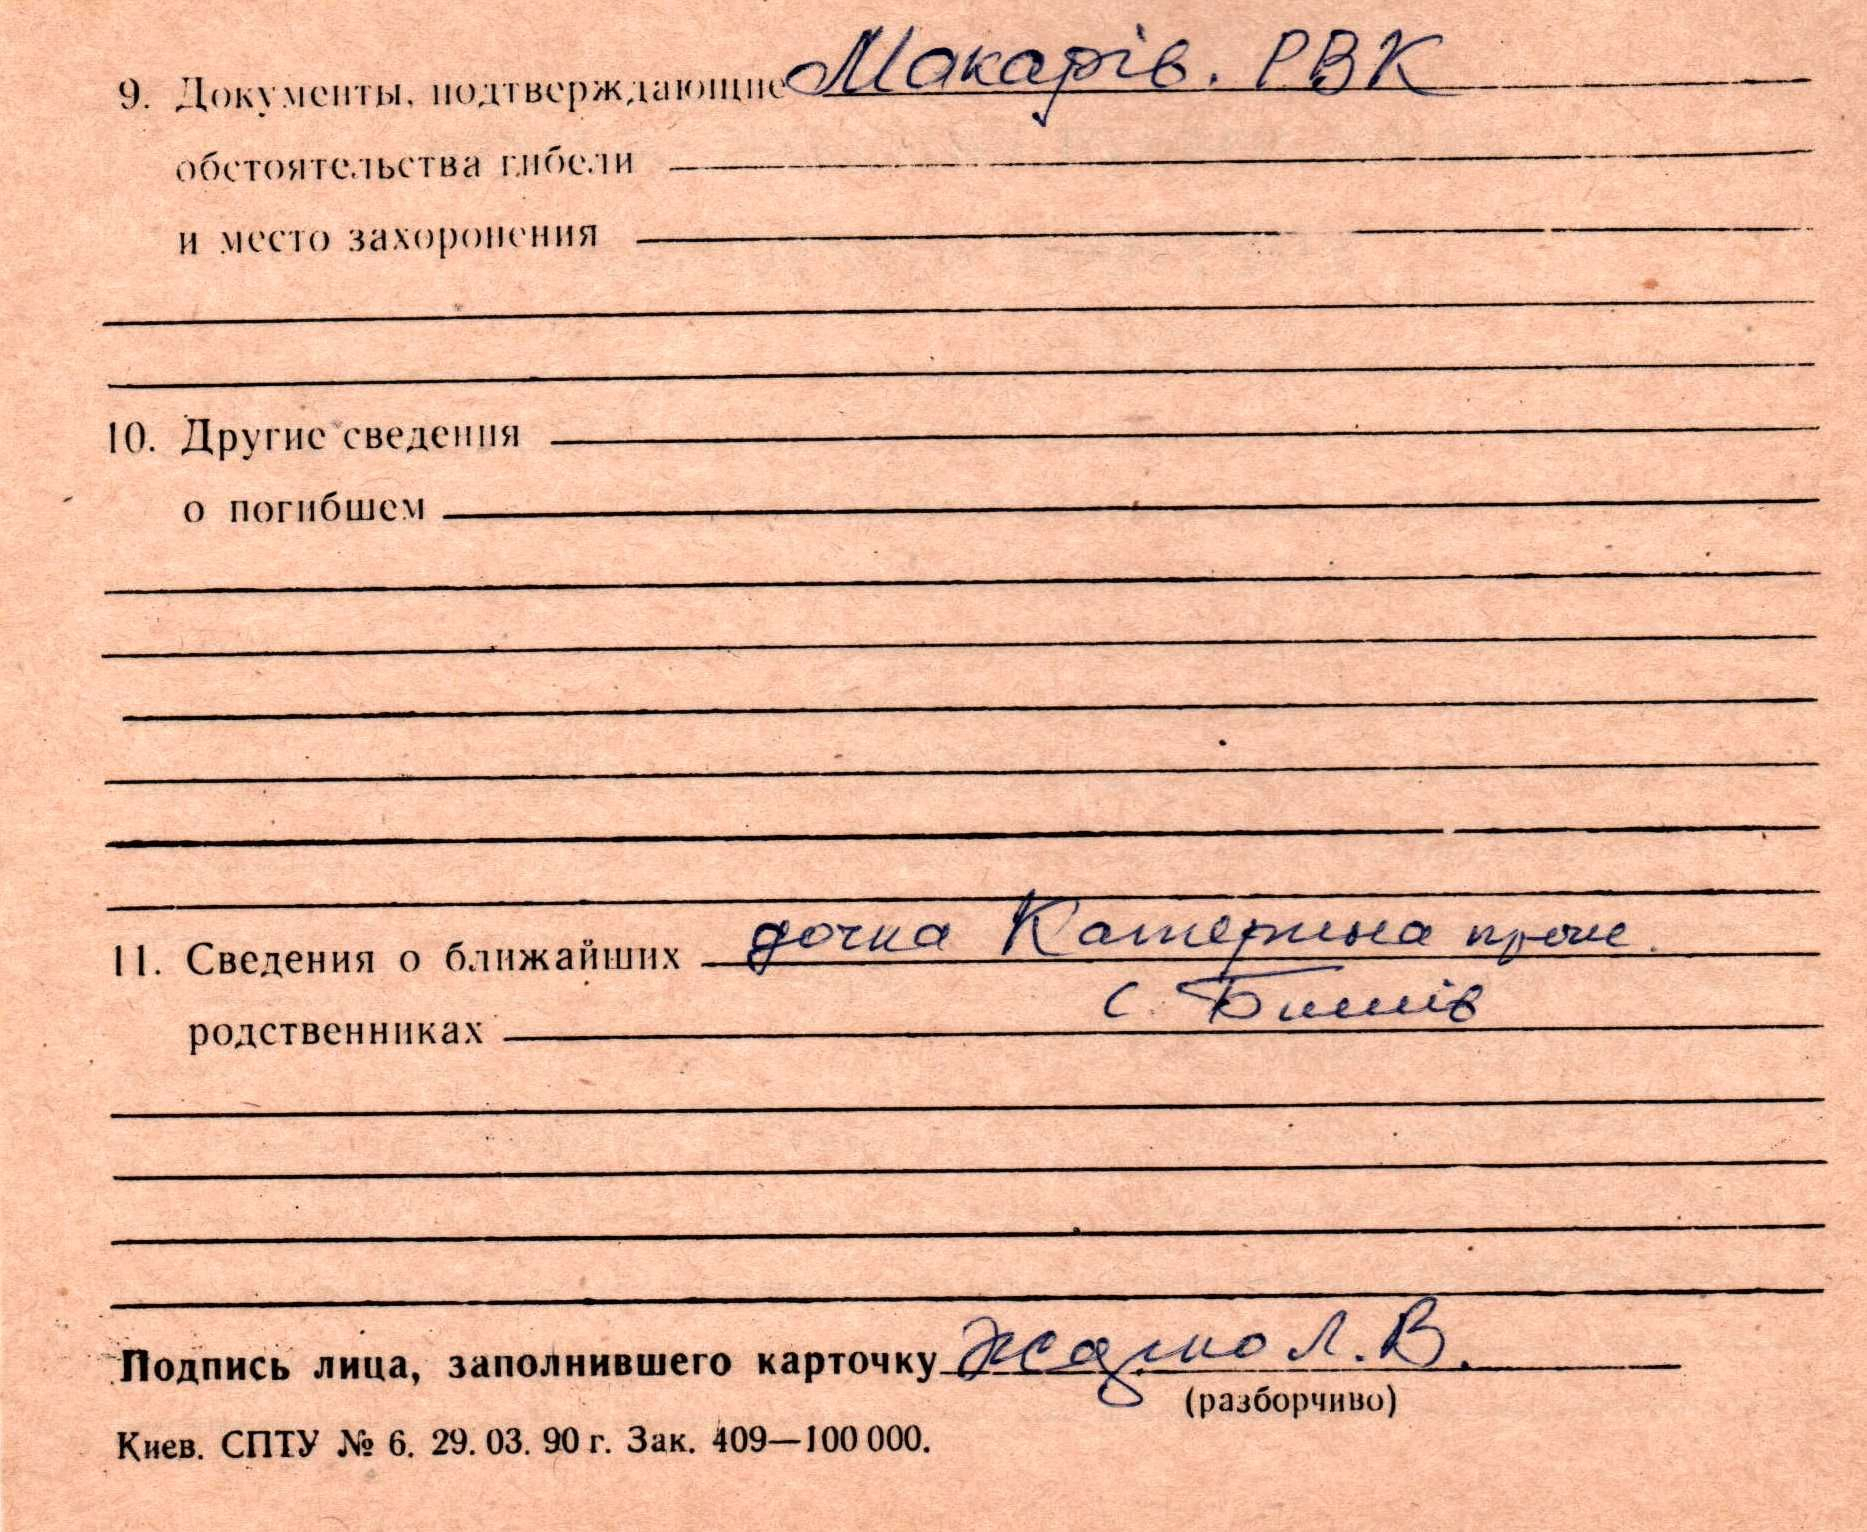 9. Документы, подтверждающие Макарів. РВК
обстоятельства гибели
и место захоронения
10. Другие сведения
о погибшем
11. Сведения о ближайших дочка Катерина прож.
родственниках с. Бишів
Подпись лица, заполнившего карточку Л. В.
(разборчиво)
Киев. СПТУ № 6. 29. 03. 90 г. Зак. 409—100 000.